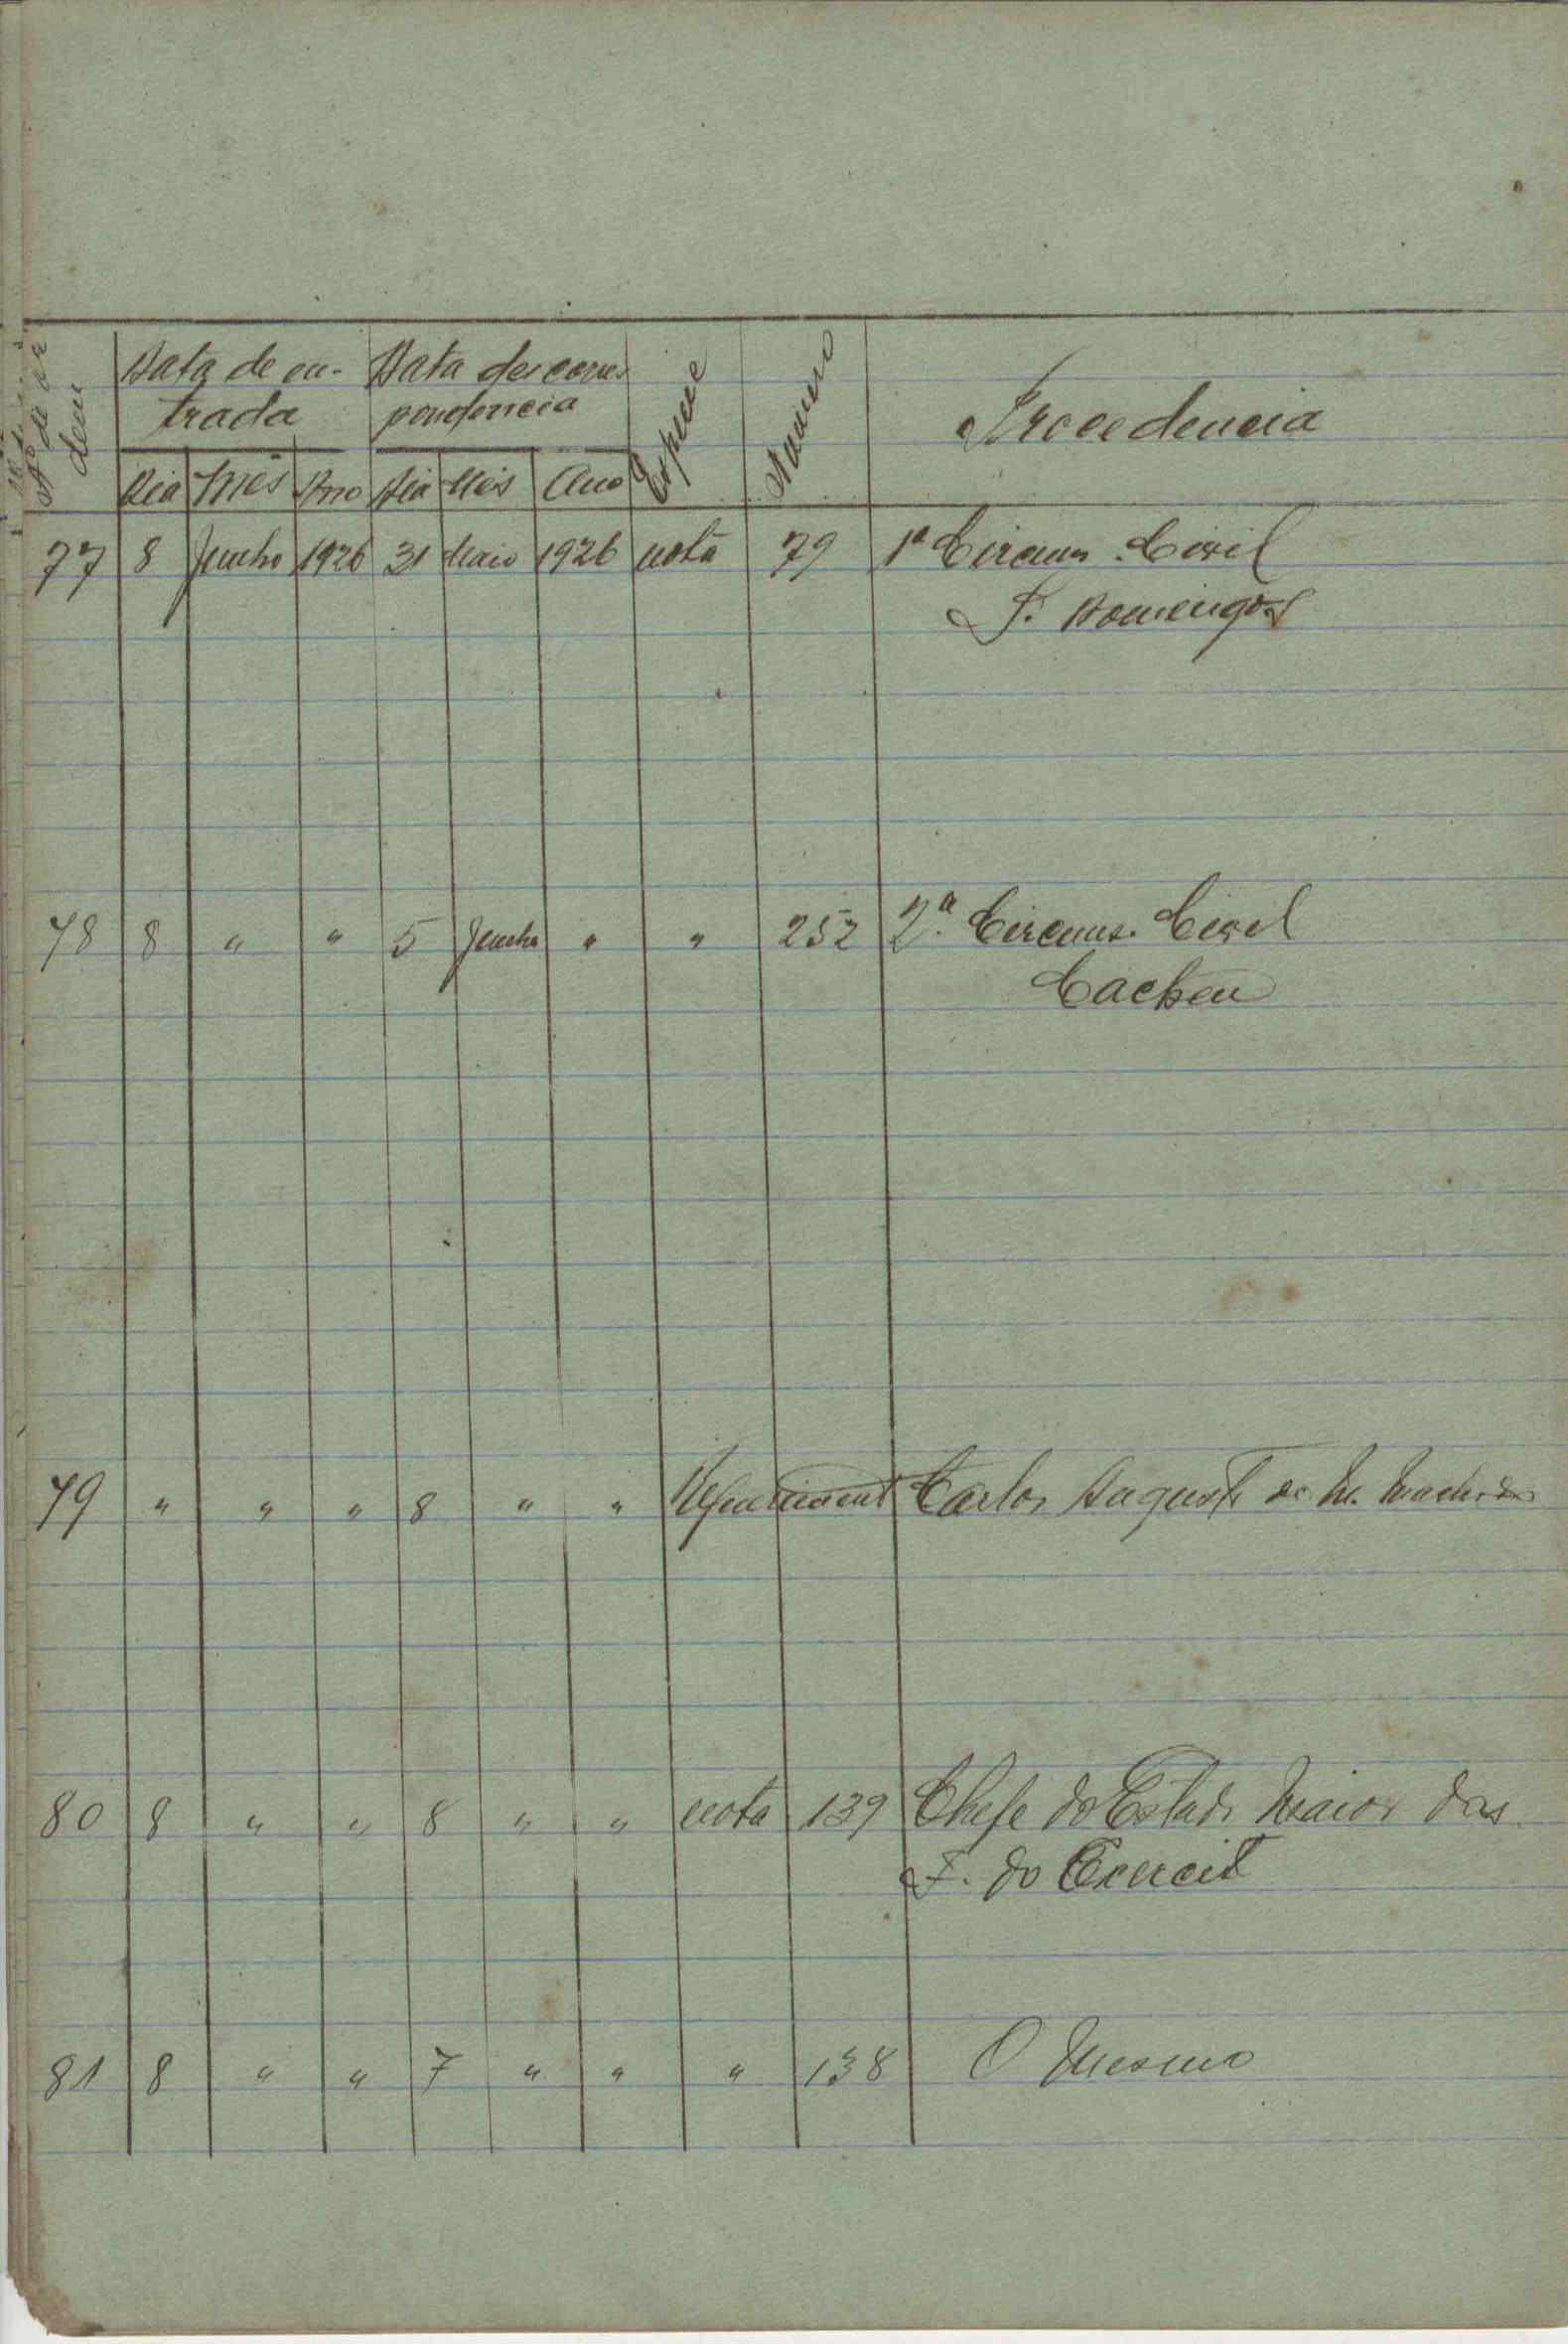 Nº de or
dem
Data de en-
trada
Data da corres
pondencia
Especie
Numero
Procedencia
Dia Mês Ano Dia Mês Ano
77 8 Junho 1926 31 Maio 1926 nota 79 1ª Circuns. Civil
S. Domingos
78 8 " " 5 Junho " " 252 2.ª Circuns. Civil
Cacheu
79 " " " 8 " " Requeriment Carlos Augusto de M. Machado
80 8 " " 8 " " nota 139 Chefe do Estado Maior das
F. do Exercito
81 8 " " 7 " " " 138 O Mesmo